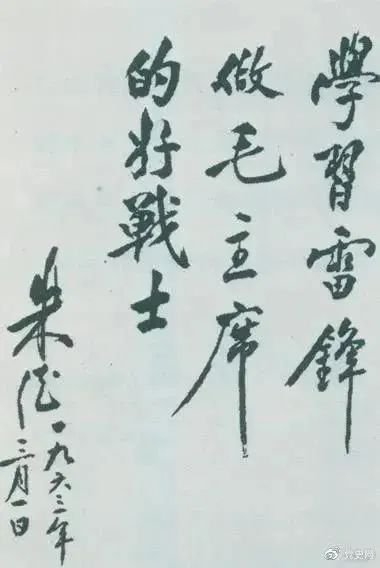 學習雷鋒
做毛主席
的好戰士
朱德 一九六三年
三月一日
党史网